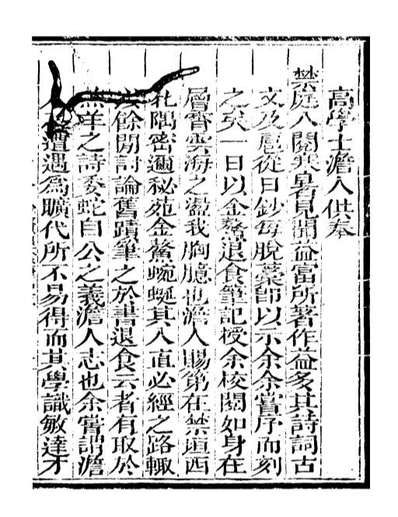 高學士澹人供奉
禁庭八閱寒暑見聞益富所著作益多其詩詞古
文及扈從日鈔每脫藁即以示余余嘗序而刻
之矣一日以金鰲退食筆記授余校閱如身在
層霄雲海之盪我胸臆也澹人賜第在禁垣西
北隅密邇秘苑金鰲蜿蜒其入直必經之路輒
餘閒討論舊蹟筆之於書退食云者有取於
羔羊之詩委蛇自公之義澹人志也余嘗謂澹
人遭遇為曠代所不易得而其學識敏達才